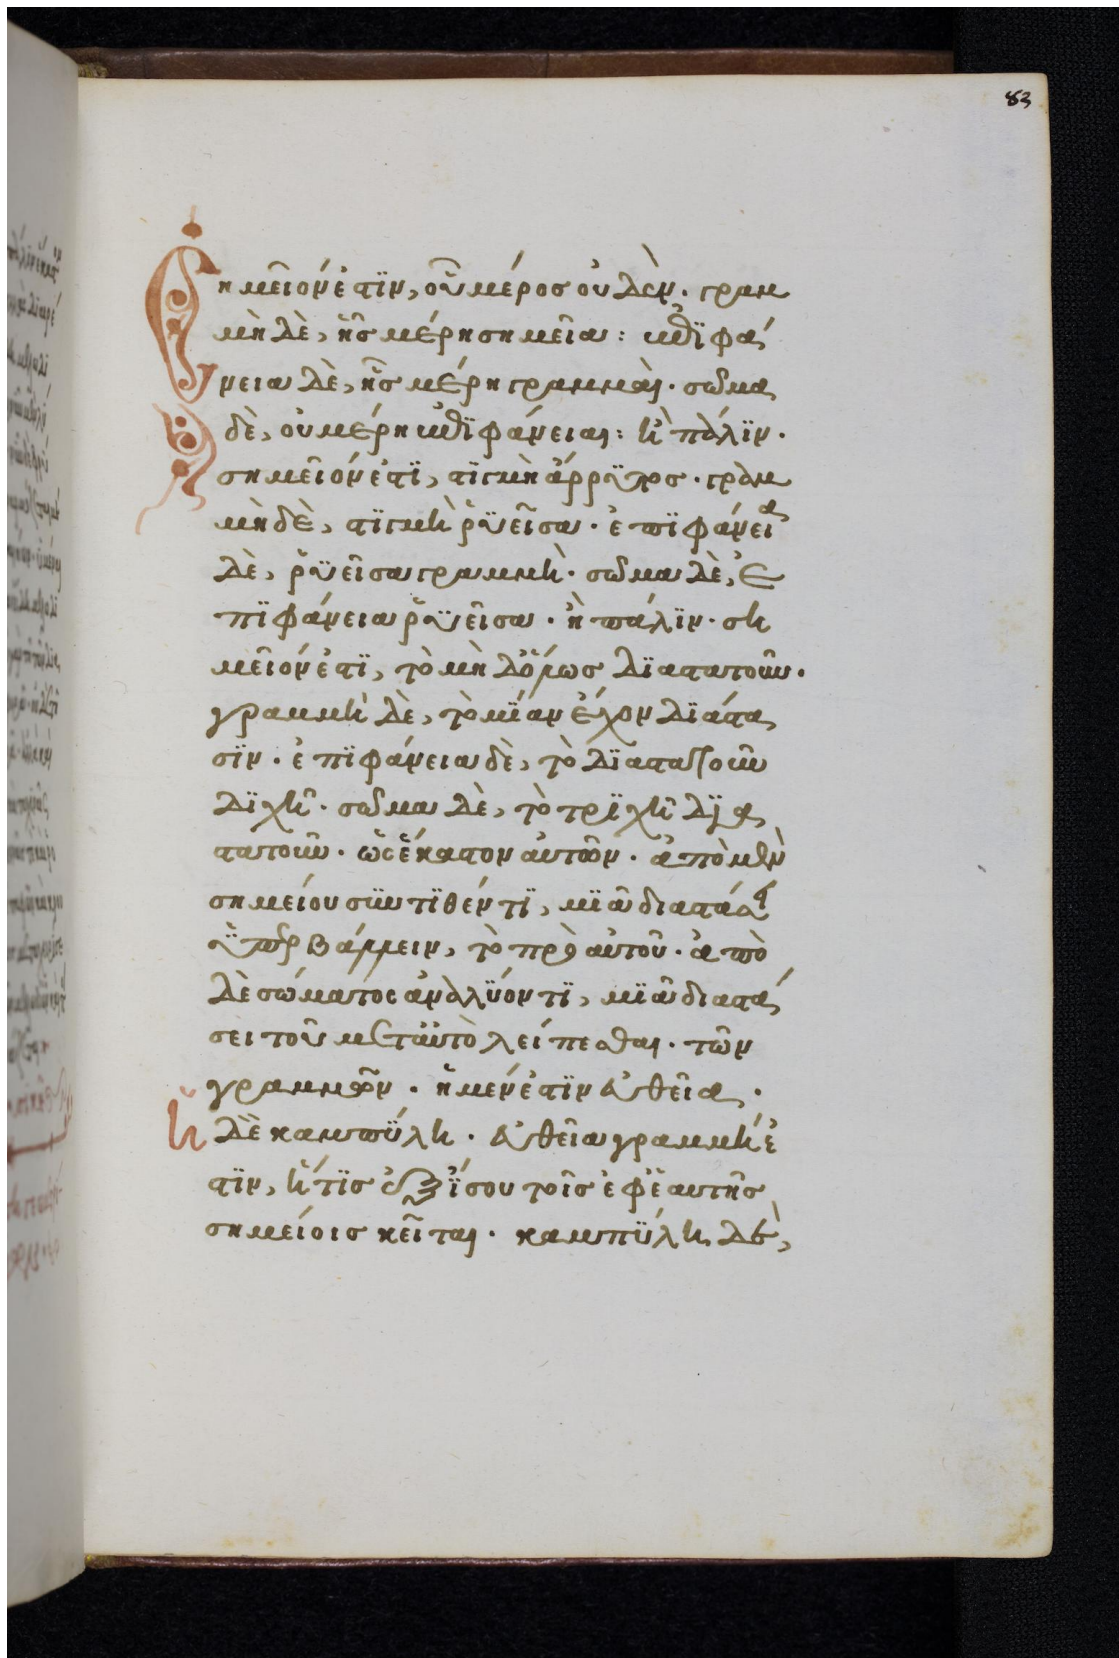 83
Σημεῖόν ἐστϊν, οὗ μέρος οὐδέν. γραμ
μὴ δὲ, ἧς μέρη σημεῖα: ἐπϊφά
νεια δὲ, ἧς μέρη γραμμαὶ. σῶμα
δὲ, οὗ μέρη ἐπϊφάνειαι: ἢ πάλϊν.
σημεῖόν ἐστϊ, στϊγμὴ ἄρρϋτος. γραμ
μὴ δὲ, στϊγμὴ ῥϋεῖσα. ἐπϊφάνεια
δὲ, ῥϋεῖσα γραμμὴ. σῶμα δὲ, ἐ
πϊφάνεια ῥϋεῖσα. ἢ πάλϊν. ση
μεῖόν ἐστϊ, τὸ μηδόμως δϊαστατοῦν.
γραμμὴ δὲ, τὸ μίαν ἔχον δϊάστα
σϊν. ἐπϊφάνεια δὲ, τὸ δϊαστατοῦν
δϊχῆ. σῶμα δὲ, τὸ τρϊχῆ δϊα
στατοῦν. ὡς ἕκαστον αὐτῶν. ἀπὸ μὲν
σημείου σϋντϊθέντϊ, μϊᾶ διαστάσει
ϋπερβάλλειν, τὸ πρὸ αὐτοῦ. ἀπὸ
δὲ σώματος ἀναλϋόντϊ, μϊᾶ διαστά
σει τοῦ μετ' αὐτὸ λείπεσθαι. τῶν
γραμμῶν. ἡ μέν ἐστϊν εὐθεῖα.
ἡ δὲ καμπϋλη. εὐθεῖα γραμμή ἐ
στϊν, ἥτϊς ἐξ ἴσου τοῖς ἐφ' ἑαυτῆς
σημείοις κεῖται. καμπϋλη δὲ,